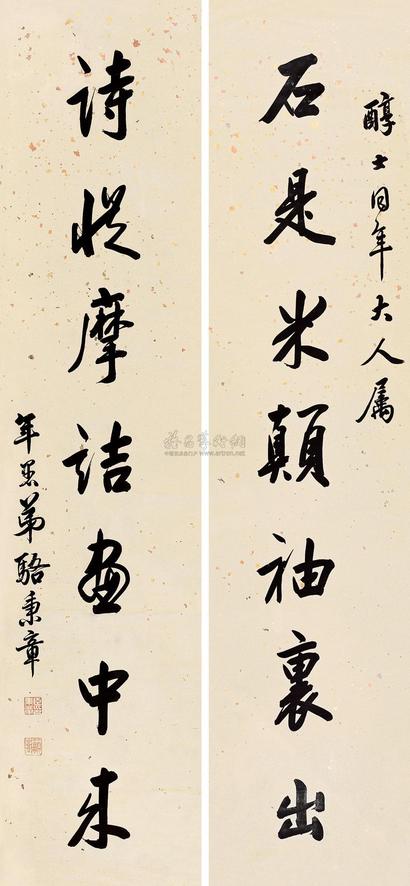 醇士同年大人属
石是米顛袖裏出
詩從摩詰畫中来
年愚弟駱秉章
www.artron.net